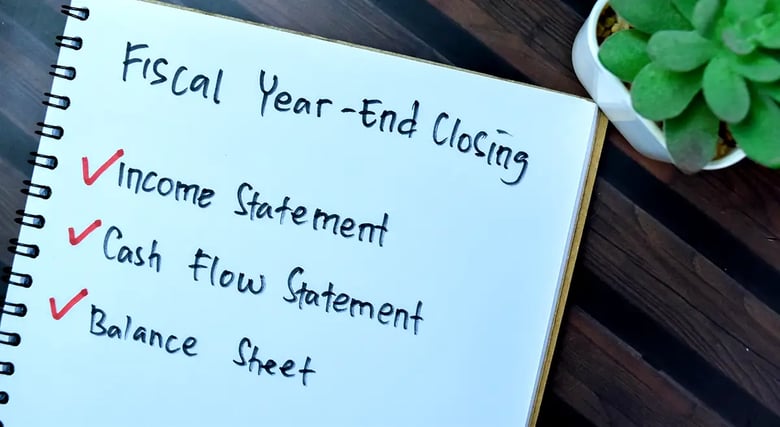 Fiscal Year-End Closing
Income Statement
Cash Flow Statement
Balance Sheet